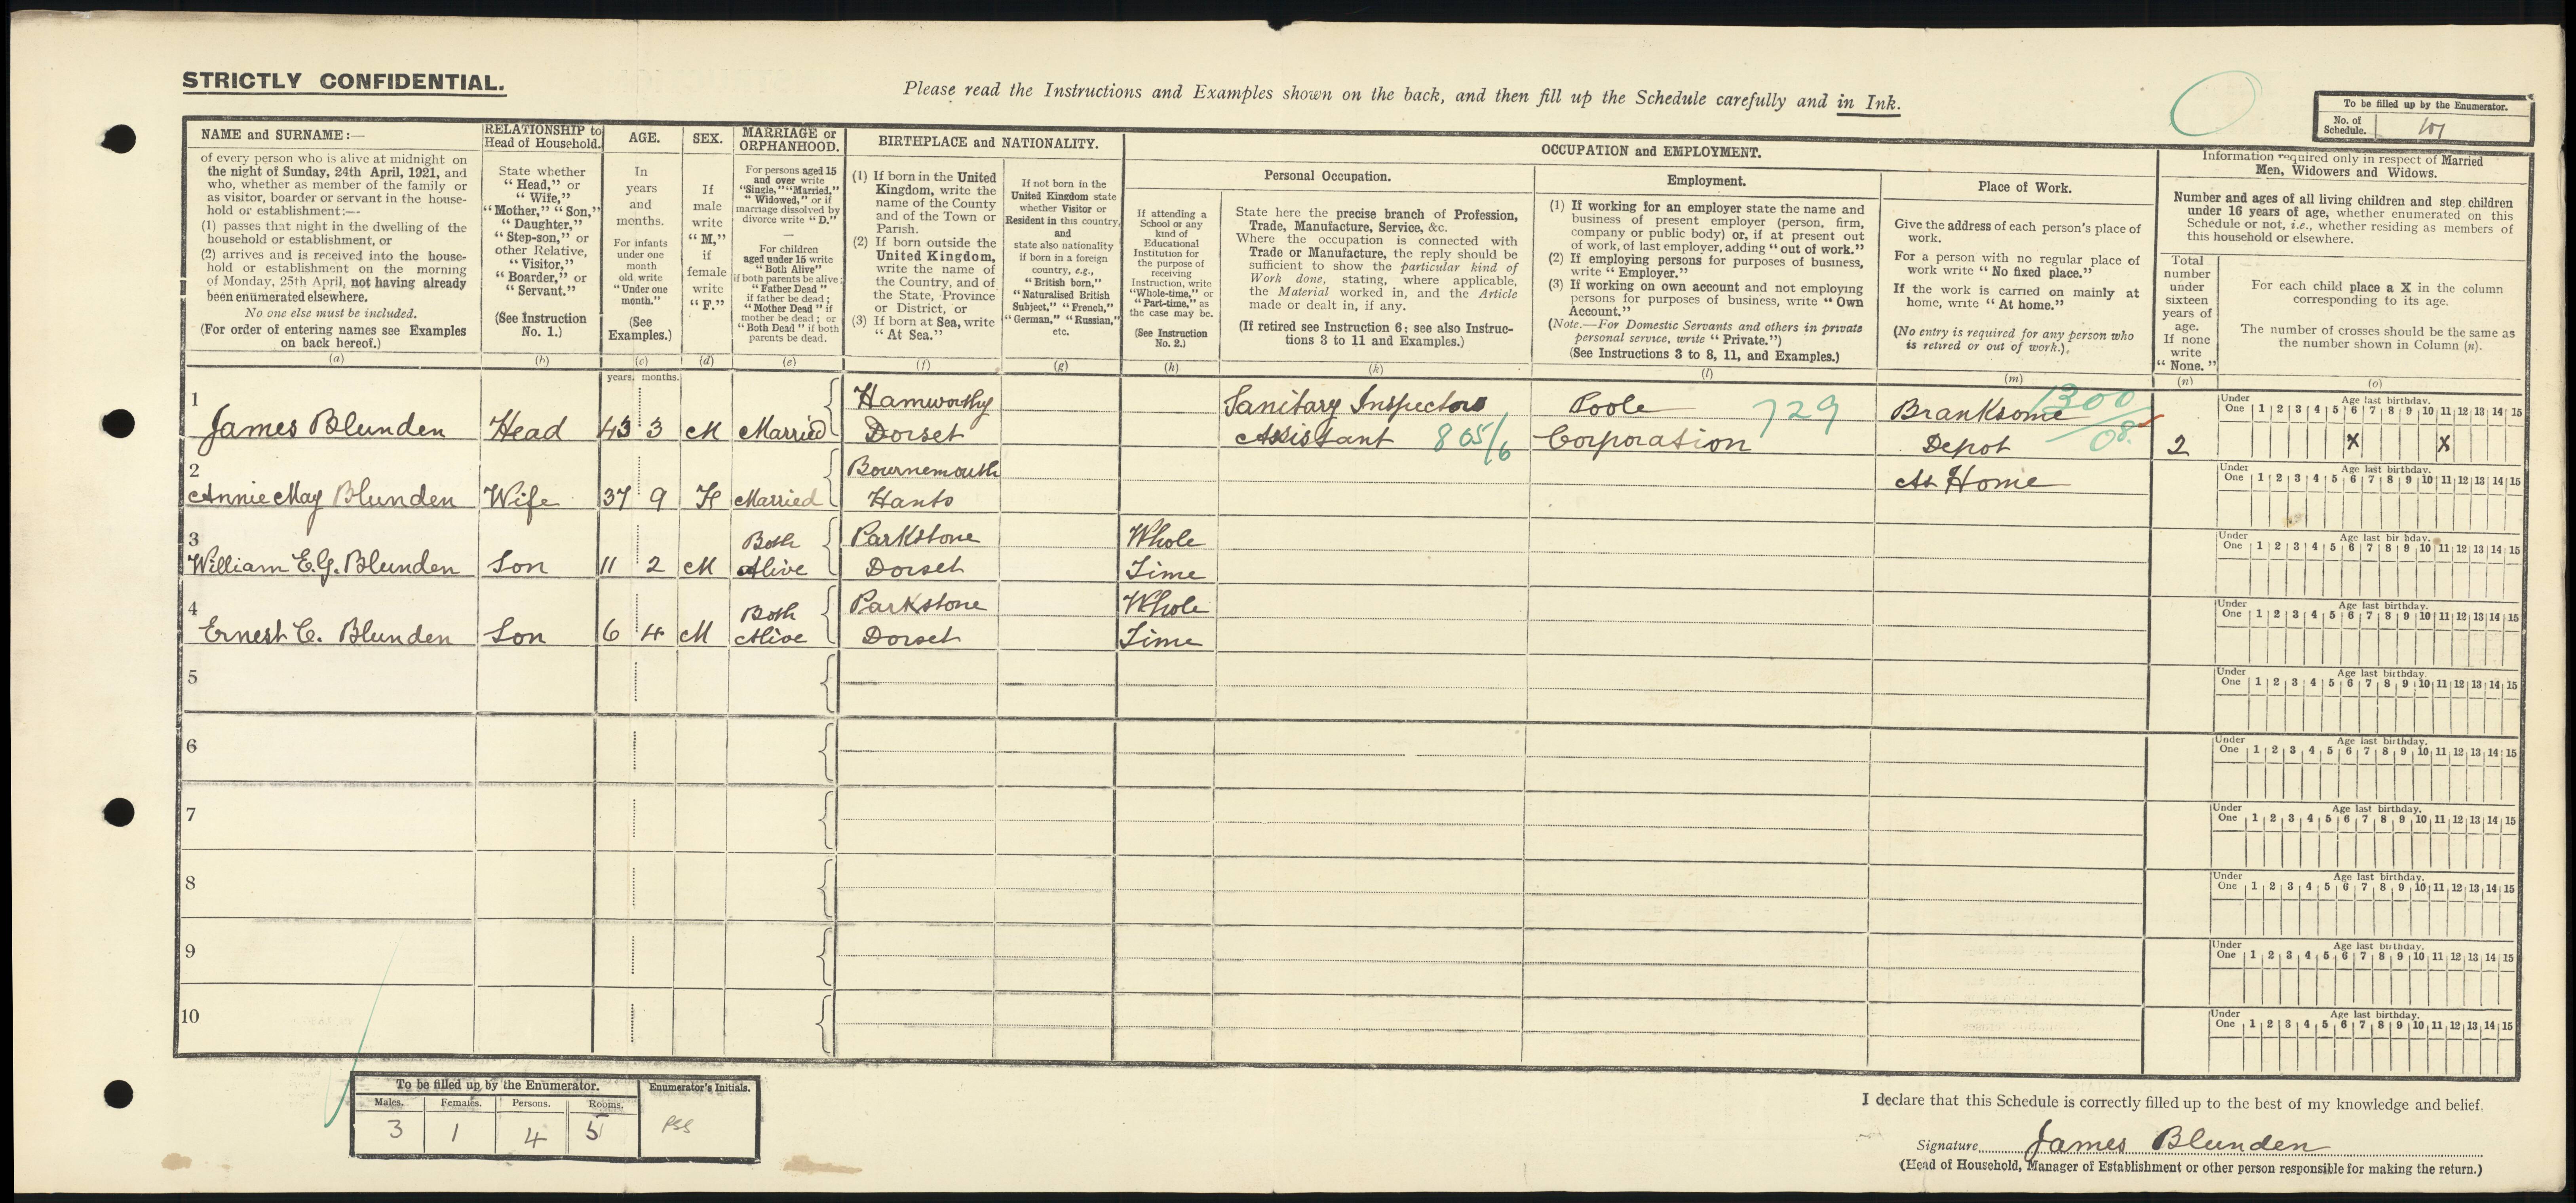 STRICTLY CONFIDENTIAL.
Please read the Instructions and Examples shown on the back, and then fill up the Schedule carefully and in Ink.
To be filled up by the Enumerator.
No. of Schedule. 101
NAME and SURNAME:—
of every person who is alive at midnight on
the night of Sunday, 24th April, 1921, and
who, whether as member of the family or
as visitor, boarder or servant in the house-
hold or establishment:—
(1) passes that night in the dwelling of the
household or establishment, or
(2) arrives and is received into the house-
hold or establishment on the morning
of Monday, 25th April, not having already
been enumerated elsewhere.
No one else must be included.
(For order of entering names see Examples
on back hereof.)
(a)
RELATIONSHIP to
Head of Household.
State whether
"Head," or
"Wife,"
"Mother," "Son,"
"Daughter,"
"Step-son," or
other Relative,
"Visitor,"
"Boarder," or
"Servant."
(See Instruction
No. 1.)
(b)
AGE.
In
years
and
months.
For infants
under one
month
old write
"Under one
month."
(See
Examples.)
(c)
SEX.
If
male
write
"M,"
if
female
write
"F."
(d)
MARRIAGE or
ORPHANHOOD.
For persons aged 15
and over write
"Single," "Married,"
"Widowed," or if
marriage dissolved by
divorce write "D."
—
For children
aged under 15 write
"Both Alive"
if both parents be alive;
"Father Dead"
if father be dead;
"Mother Dead" if
mother be dead; or
"Both Dead" if both
parents be dead.
(e)
BIRTHPLACE and NATIONALITY.
(1) If born in the United
Kingdom, write the
name of the County
and of the Town or
Parish.
(2) If born outside the
United Kingdom,
write the name of
the Country, and of
the State, Province
or District, or
(3) If born at Sea, write
"At Sea."
(f)
If not born in the
United Kingdom state
whether Visitor or
Resident in this country,
and
state also nationality
if born in a foreign
country, e.g.,
"British born,"
"Naturalised British
Subject," "French,"
"German," "Russian,"
etc.
(g)
OCCUPATION and EMPLOYMENT.
If attending a
School or any
kind of
Educational
Institution for
the purpose of
receiving
Instruction, write
"Whole-time," or
"Part-time," as
the case may be.
(See Instruction
No. 2.)
(h)
Personal Occupation.
State here the precise branch of Profession,
Trade, Manufacture, Service, &c.
Where the occupation is connected with
Trade or Manufacture, the reply should be
sufficient to show the particular kind of
Work done, stating, where applicable,
the Material worked in, and the Article
made or dealt in, if any.
(If retired see Instruction 6; see also Instruc-
tions 3 to 11 and Examples.)
(k)
Employment.
(1) If working for an employer state the name and
business of present employer (person, firm,
company or public body) or, if at present out
of work, of last employer, adding "out of work."
(2) If employing persons for purposes of business,
write "Employer."
(3) If working on own account and not employing
persons for purposes of business, write "Own
Account."
(Note.—For Domestic Servants and others in private
personal service, write "Private.")
(See Instructions 3 to 8, 11, and Examples.)
(l)
Place of Work.
Give the address of each person's place of
work.
For a person with no regular place of
work write "No fixed place."
If the work is carried on mainly at
home, write "At home."
(No entry is required for any person who
is retired or out of work.)
(m)
Information required only in respect of Married
Men, Widowers and Widows.
Number and ages of all living children and step children
under 16 years of age, whether enumerated on this
Schedule or not, i.e., whether residing as members of
this household or elsewhere.
Total
number
under
sixteen
years of
age.
If none
write
"None."
(n)
For each child place a X in the column
corresponding to its age.
The number of crosses should be the same as
the number shown in Column (n).
(o)
years. months.
1
James Blunden Head 43 3 M Married
Hamworthy
Dorset
Sanitary Inspectors
Assistant 805/6
Poole 729
Corporation
Branksome 1300
Depot 08.
2
Under One 1 2 3 4 5 6 7 8 9 10 11 12 13 14 15
Age last birthday.
X X
2
Annie May Blunden Wife 37 9 F Married
Bournemouth
Hants
At Home
Under One 1 2 3 4 5 6 7 8 9 10 11 12 13 14 15
Age last birthday.
3
William E.G. Blunden Son 11 2 M
Both
Alive
Parkstone
Dorset
Whole
Time
Under One 1 2 3 4 5 6 7 8 9 10 11 12 13 14 15
Age last birthday.
4
Ernest C. Blunden Son 6 4 M
Both
Alive
Parkstone
Dorset
Whole
Time
Under One 1 2 3 4 5 6 7 8 9 10 11 12 13 14 15
Age last birthday.
5
Under One 1 2 3 4 5 6 7 8 9 10 11 12 13 14 15
Age last birthday.
6
Under One 1 2 3 4 5 6 7 8 9 10 11 12 13 14 15
Age last birthday.
7
Under One 1 2 3 4 5 6 7 8 9 10 11 12 13 14 15
Age last birthday.
8
Under One 1 2 3 4 5 6 7 8 9 10 11 12 13 14 15
Age last birthday.
9
Under One 1 2 3 4 5 6 7 8 9 10 11 12 13 14 15
Age last birthday.
10
Under One 1 2 3 4 5 6 7 8 9 10 11 12 13 14 15
Age last birthday.
To be filled up by the Enumerator.
Enumerator's Initials.
Males. Females. Persons. Rooms.
3 1 4 5
I declare that this Schedule is correctly filled up to the best of my knowledge and belief.
Signature James Blunden
(Head of Household, Manager of Establishment or other person responsible for making the return.)